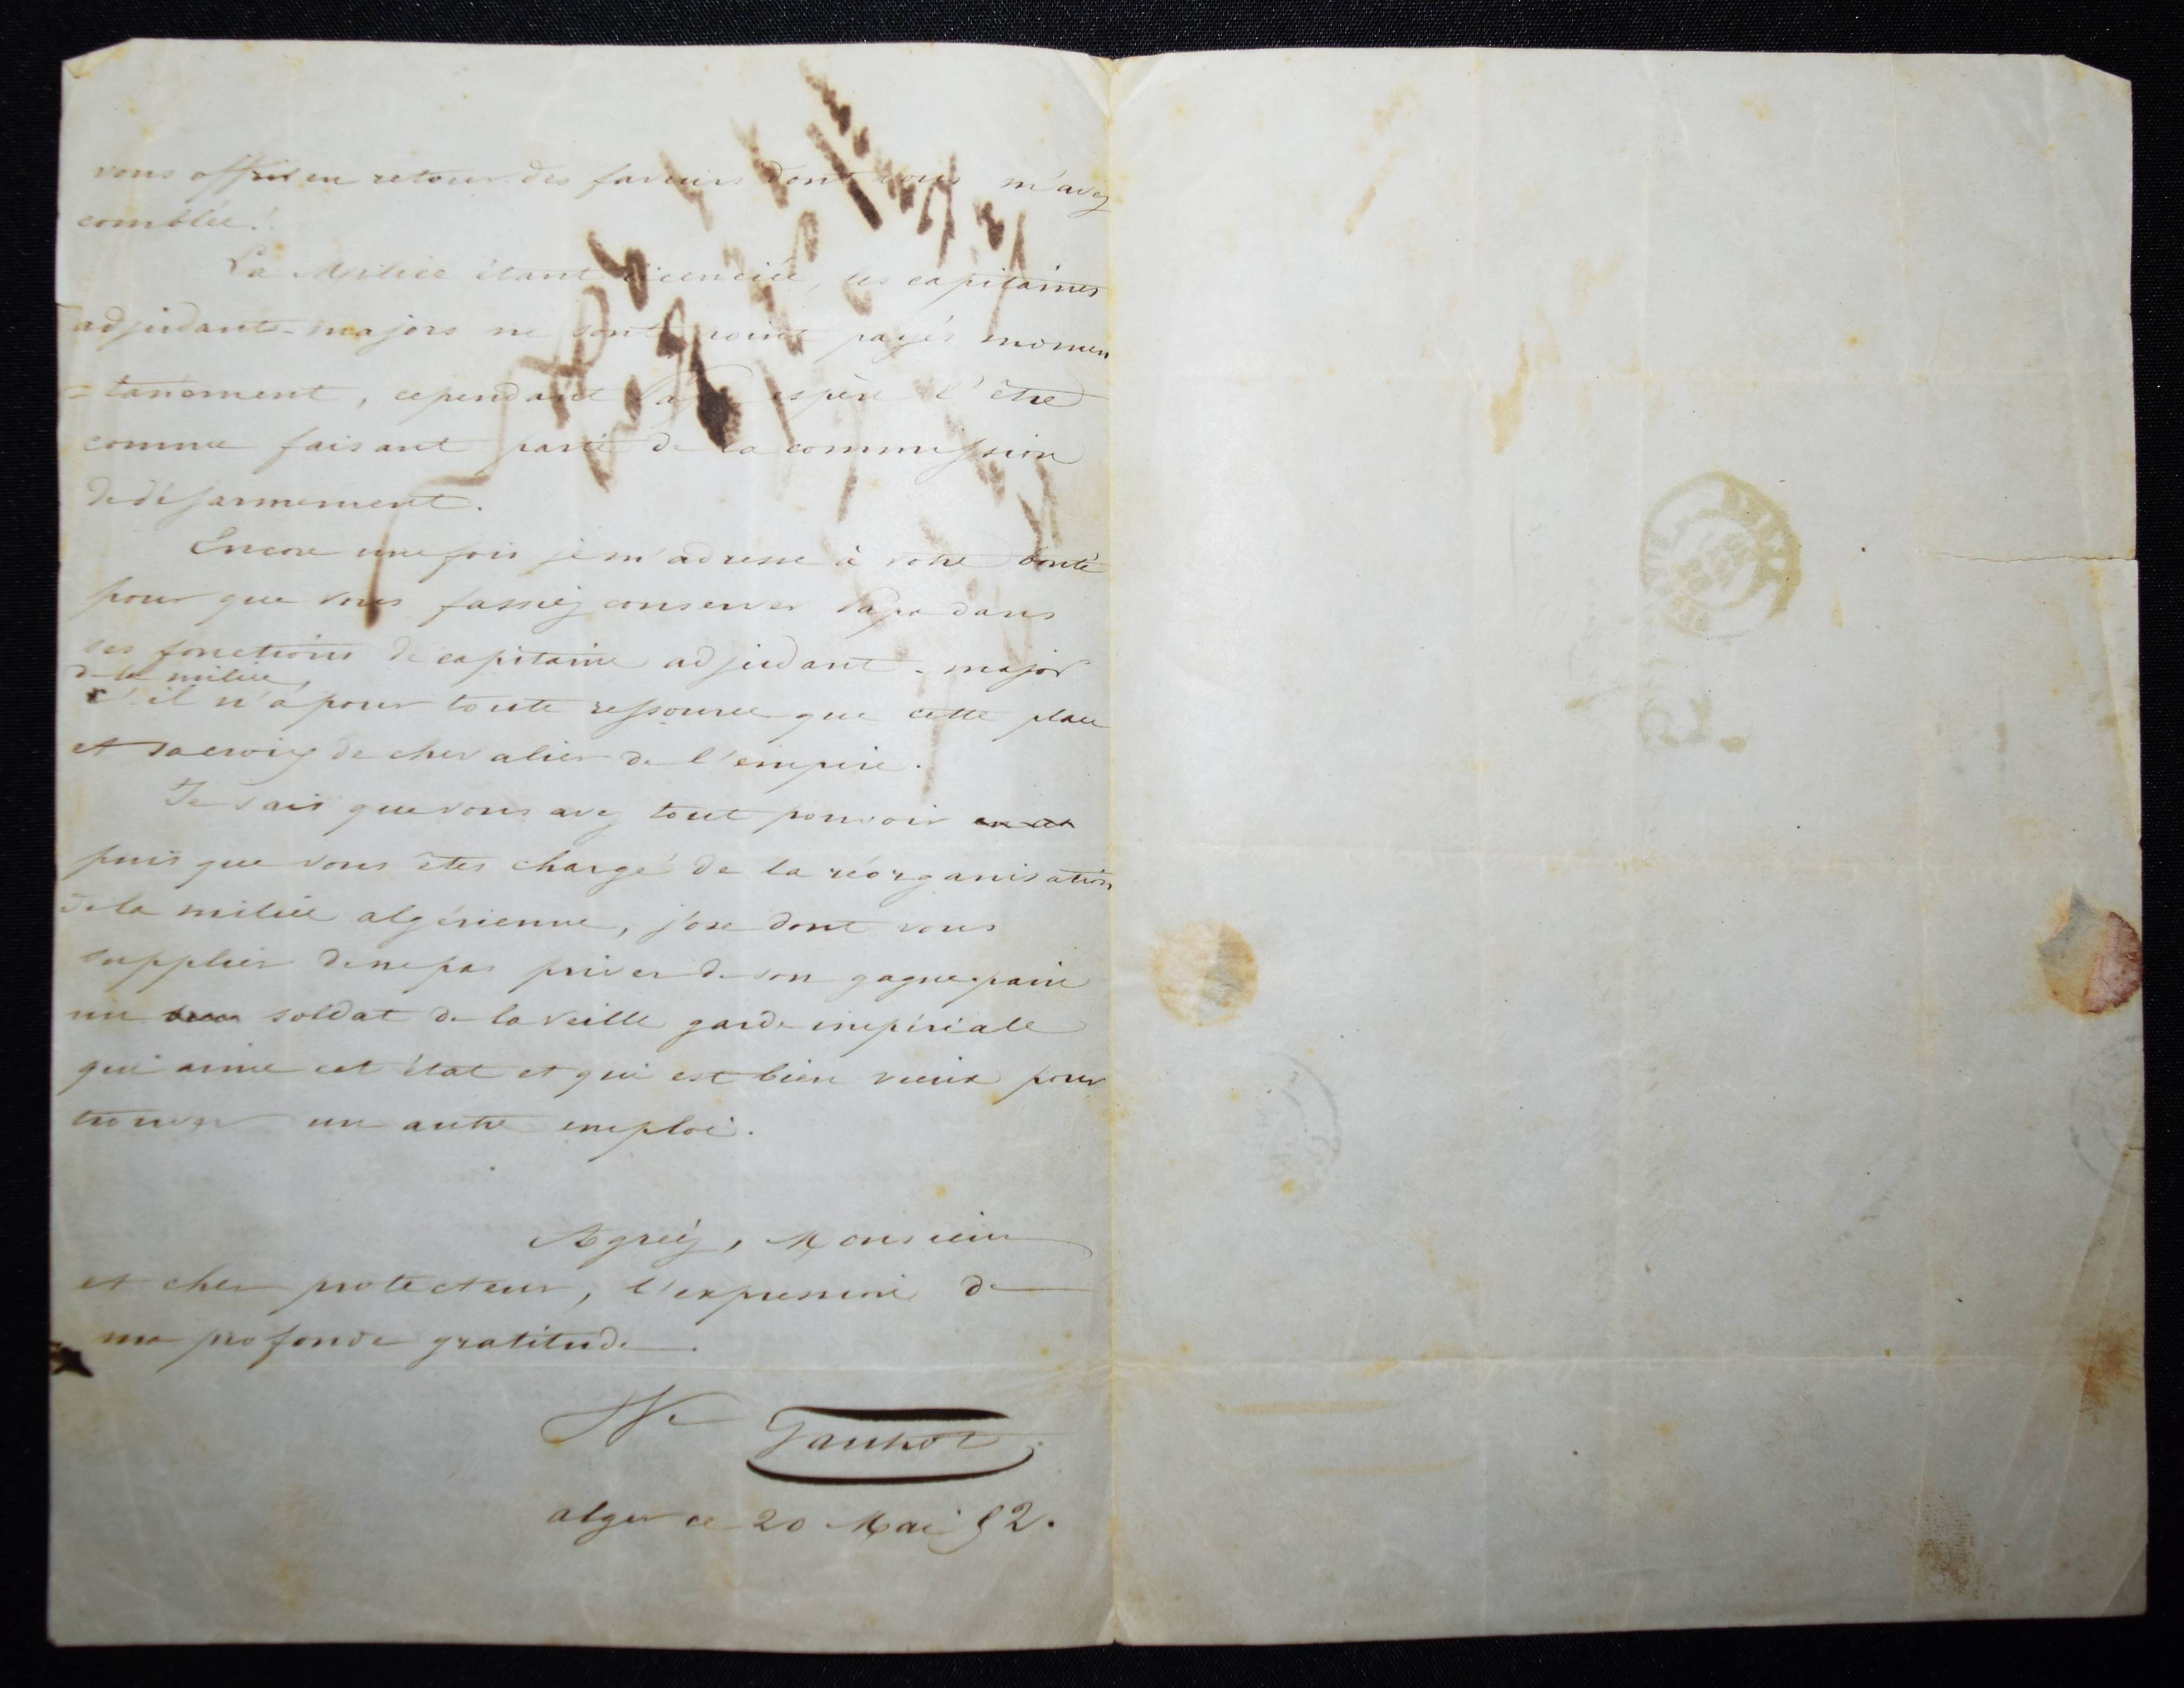 vous offrir en retour des faveurs dont vous m'avez
comblée!
La Milice étant licenciée, les capitaines
adjudants-majors ne sont point payés momen
= tanément, cependant Papa espère l'être
comme faisant parti de la commission
de désarmement.
Encore une fois je m'adresse à votre bonté
pour que vous fassiez conserver Papa dans
ses fonctions de capitaine adjudant-major
de la milice,
il n'a pour toute ressource que cette place
et sa croix de chevalier de l'empire.
Je sais que vous avez tout pouvoir
puis que vous êtes chargé de la réorganisation
de la milice algérienne, j'ose dont vous
supplier de ne pas priver de son gagne-pain
un soldat de la veille garde impériale
qui aime cet état et qui est bien vieux pour
trouver un autre emploi.
Agréez, Monsieur
et cher protecteur, l'expression de
ma profonde gratitude.
alger ce 20 Mai 52.